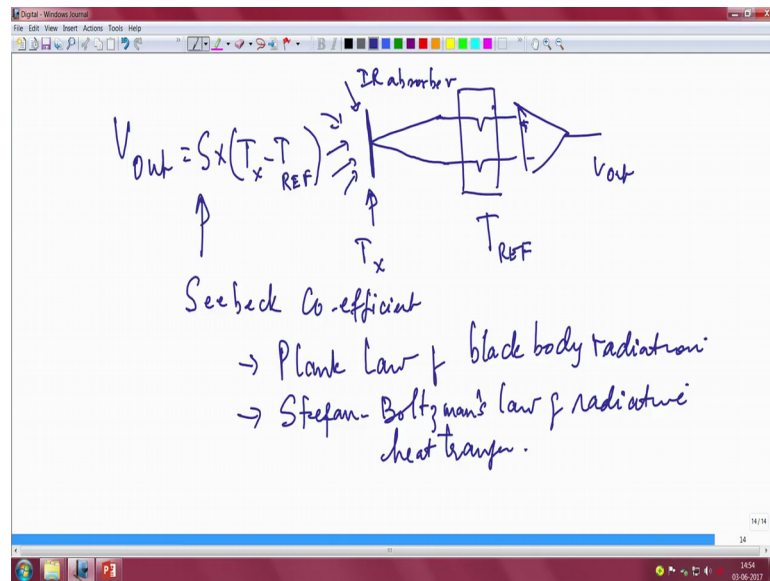 Digital - Windows Journal
File Edit View Insert Actions Tools Help
IR absorber
V Out = S x (T x - T REF)
+
-
Vout
T x
T REF
Seebeck Co-efficient
→ Plank Law of black body radiation
→ Stefan-Boltzman's law of radiative
heat transfer.
14/14
14
14:54
03-06-2017